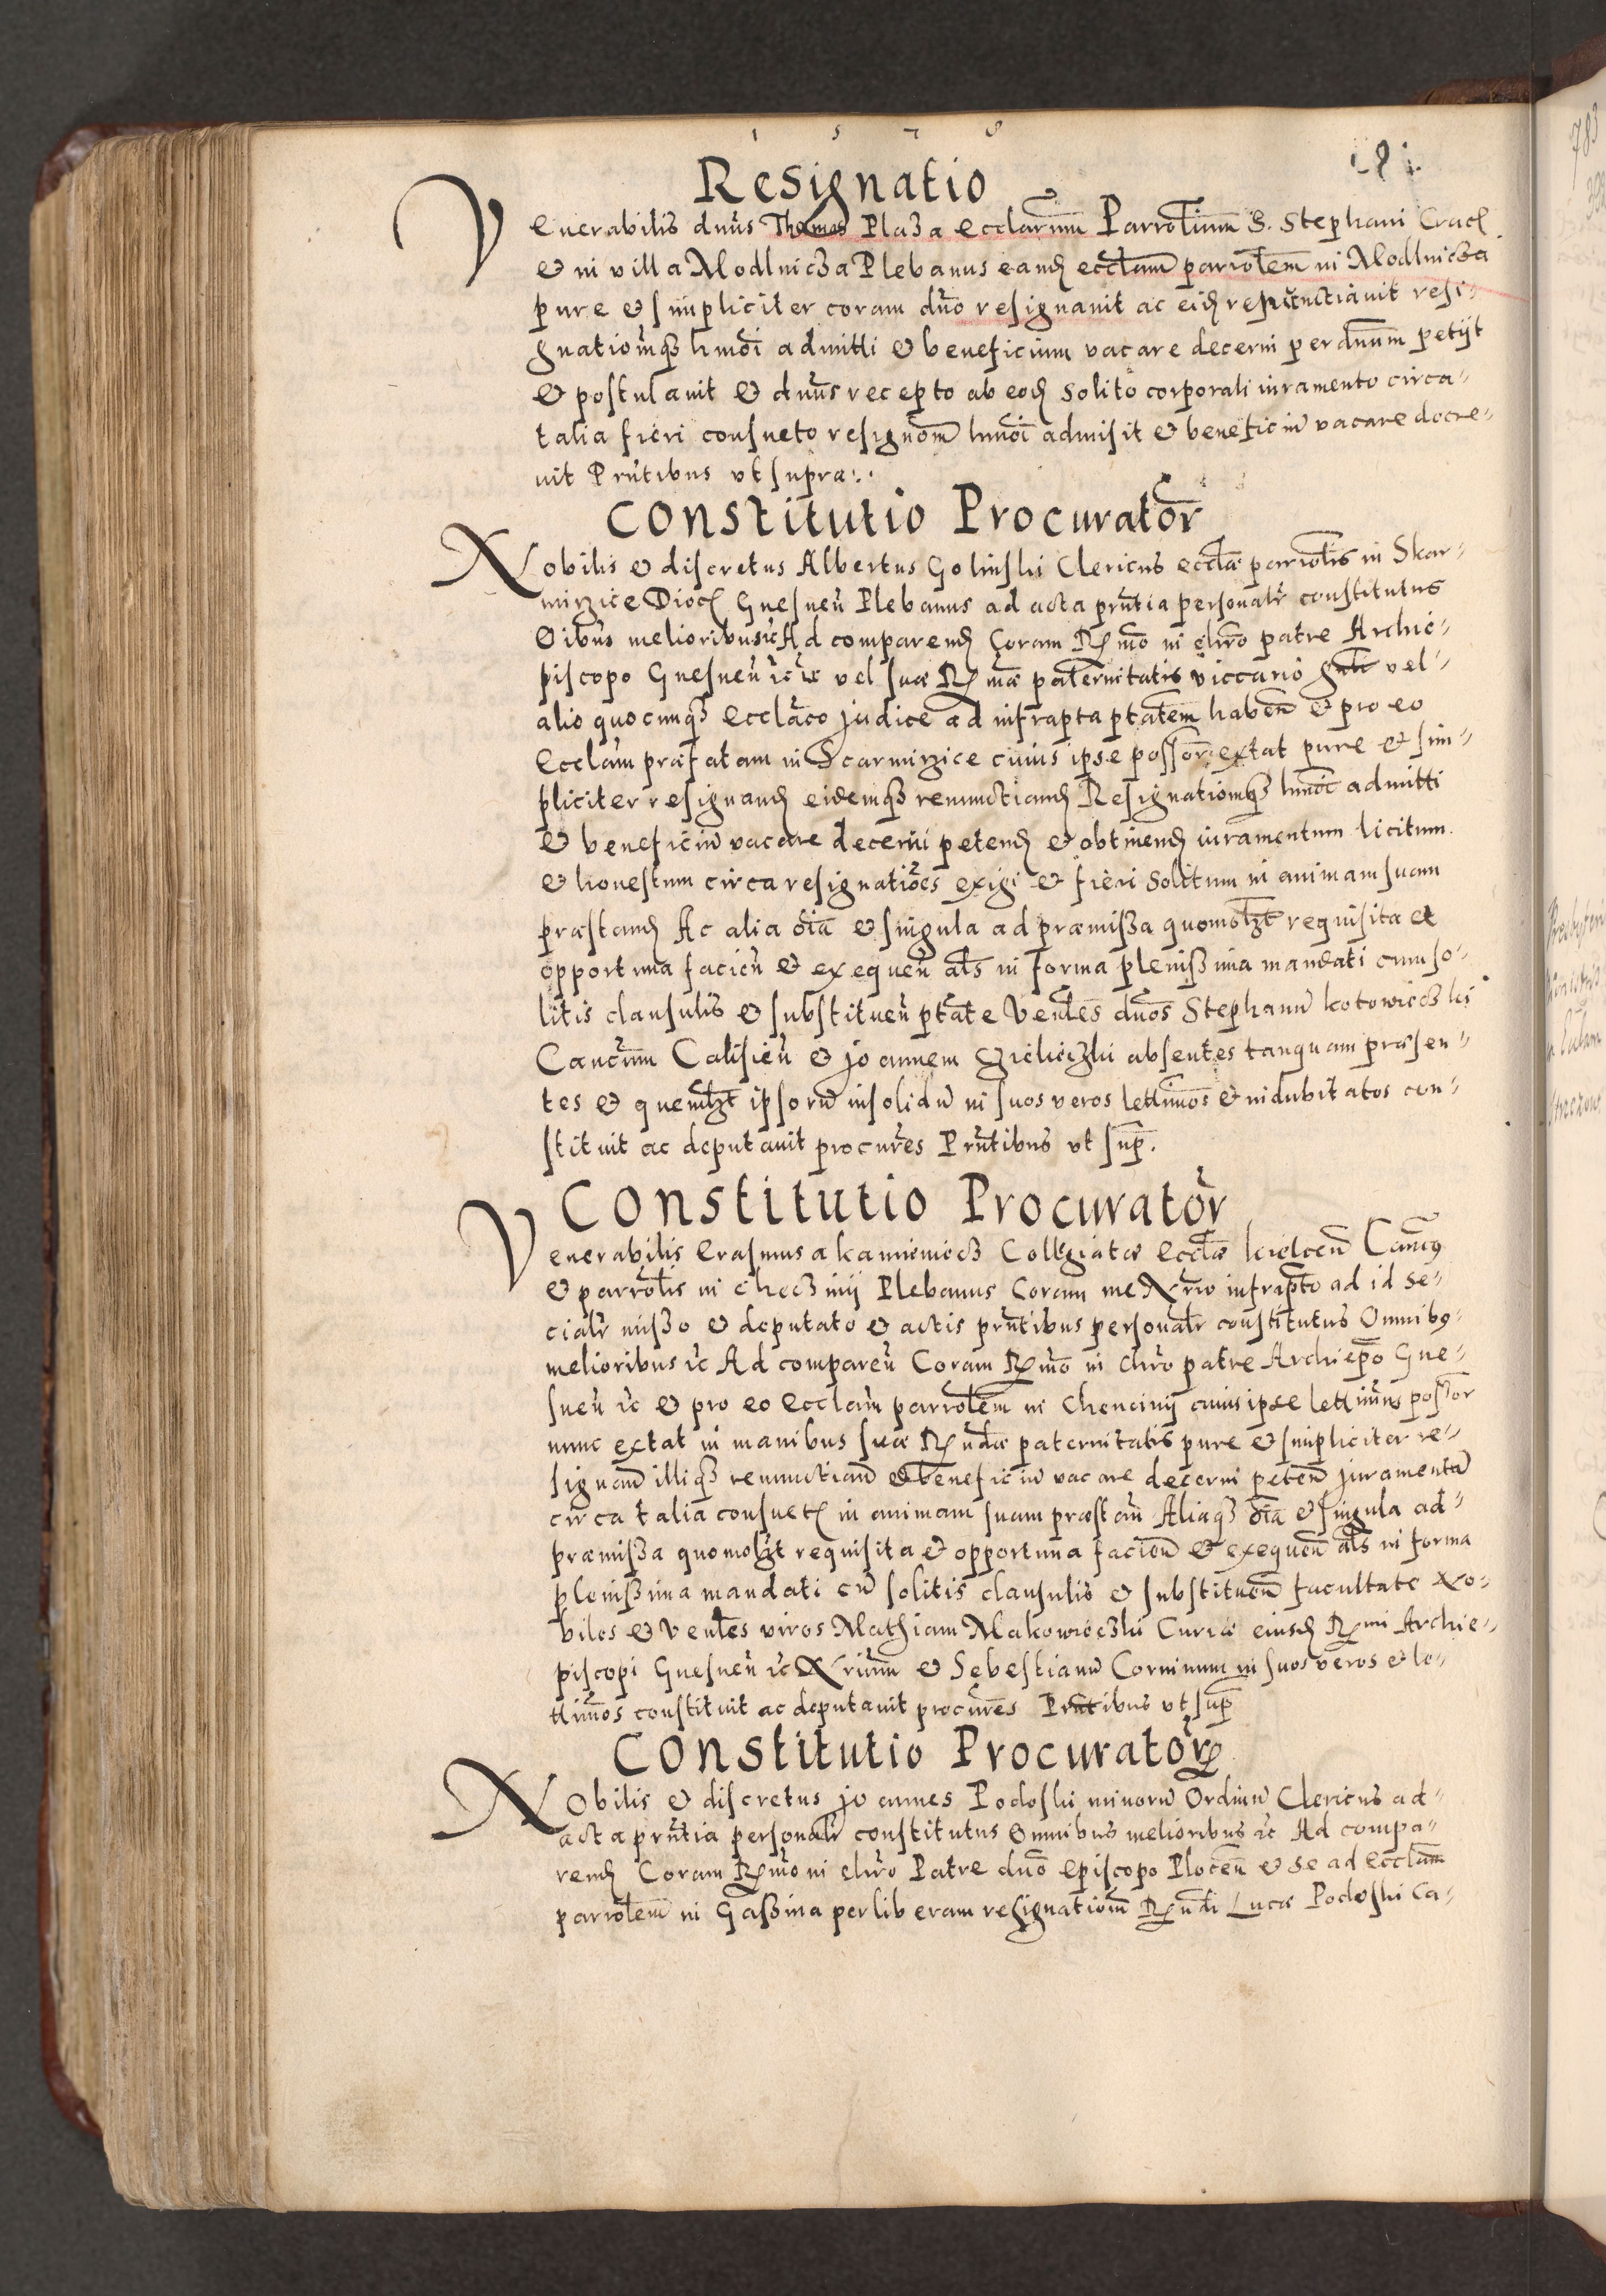 1 5 7 8
181
Resignatio
Venerabilis dnus Thomas Plaza ecclarum Parrolium S. Stephani Crac
et in villa Modlnicza Plebanus eand ecclam parrolem in Modlnicza
pure et simpliciter coram dno resignauit ac eid renunctiauit resi-
gnationqz hmoi admitti et beneficium vacare decerni per dnum petijt
et postulauit et dnus recepto ab eod solito corporali iuramento circa-
talia fieri consueto resignom hmoi admisit et beneficiu vacare decre-
uit Prntibus vt supra:.
Constitutio Procurator
Nobilis et discretus Albertus Golinski Clericus eccla parrolis in Skar-
mirzice Dioc Gnesnen Plebanus ad acta prntia personalr constitutus
Oibus melioribus etc Ad comparend Coram Rmo in chro patre Archie-
piscopo Gnesnen etc vel suæ Rmæ paternitatis viccario vel-
alio quocunqz ecclaco judice ad infrapta ptatem haben et pro eo
Ecclam præfatam in Scarmirzice cuius ipse possor extat pure et sim-
pliciter resignand eidemqz renunctiand Resignationqz hmoi admitti
et beneficiu vacare decerni petend et obtinend iuramentum licitum
et honestum circa resignationes exigi et fieri solitum in animam suam
præstand Ac alia oia et singula ad præmissa quomolzt requisita et
opportuna facien et exequen als in forma plenissima mandati cum so-
litis clausulis et substituen ptate Venles dnos Stephanu kotowieczki
Cancum Calisien et joannem Gzieliczki absentes tanquam præsen-
tes et quemlzt ipsoru insolidu in suos veros lettimos et indubitatos con-
stituit ac deputauit procures Prntibus vt sup.
Constitutio Procurator
Venerabilis Erasmus a kamieniecz Collegiatæ Ecclæ kielcen Cancus
et parrolis in checziny Plebanus Coram me Nrio infrapto ad id se-
cialr misso et deputato et actis prntibus personalr constitutus Omnibq-
melioribus etc Ad comparen Coram Rmo in chro patre Archiepo Gne-
snen etc et pro eo Ecclam parrolem in Chenciny cuius ipse lettimus possor
nunc extat in manibus suæ Rndæ paternitatis pure et simpliciter re-
signan illiqz renunctian et beneficiu vacare decerni peten juramentu
circa talia consuet in animam suam præstan Aliaqz oia et singula ad-
præmissa quomolzt requisita et opportuna facien et exequen als in forma
plenissima mandati cu solitis clausulis et substituen facultate No-
biles et Venles viros Mathiam Makowieczki Curiæ eiusd Rmi Archie-
piscopi Gnesnen etc Nrium et Sebestianu Corninum in suos veros et le-
ttimos constituit ac deputauit procures Prntibus vt sup
Constitutio Procurator
Nobilis et discretus joannes Podoski minoru Ordinu Clericus ad-
acta prntia personalr constitutus Omnibus melioribus etc Ad compa-
rend Coram Rmo in chro Patre dno Episcopo Plocen et se ad Ecclam
parrolem in Gassina per liberam resignationem Rndi Lucæ Podoski Ca-